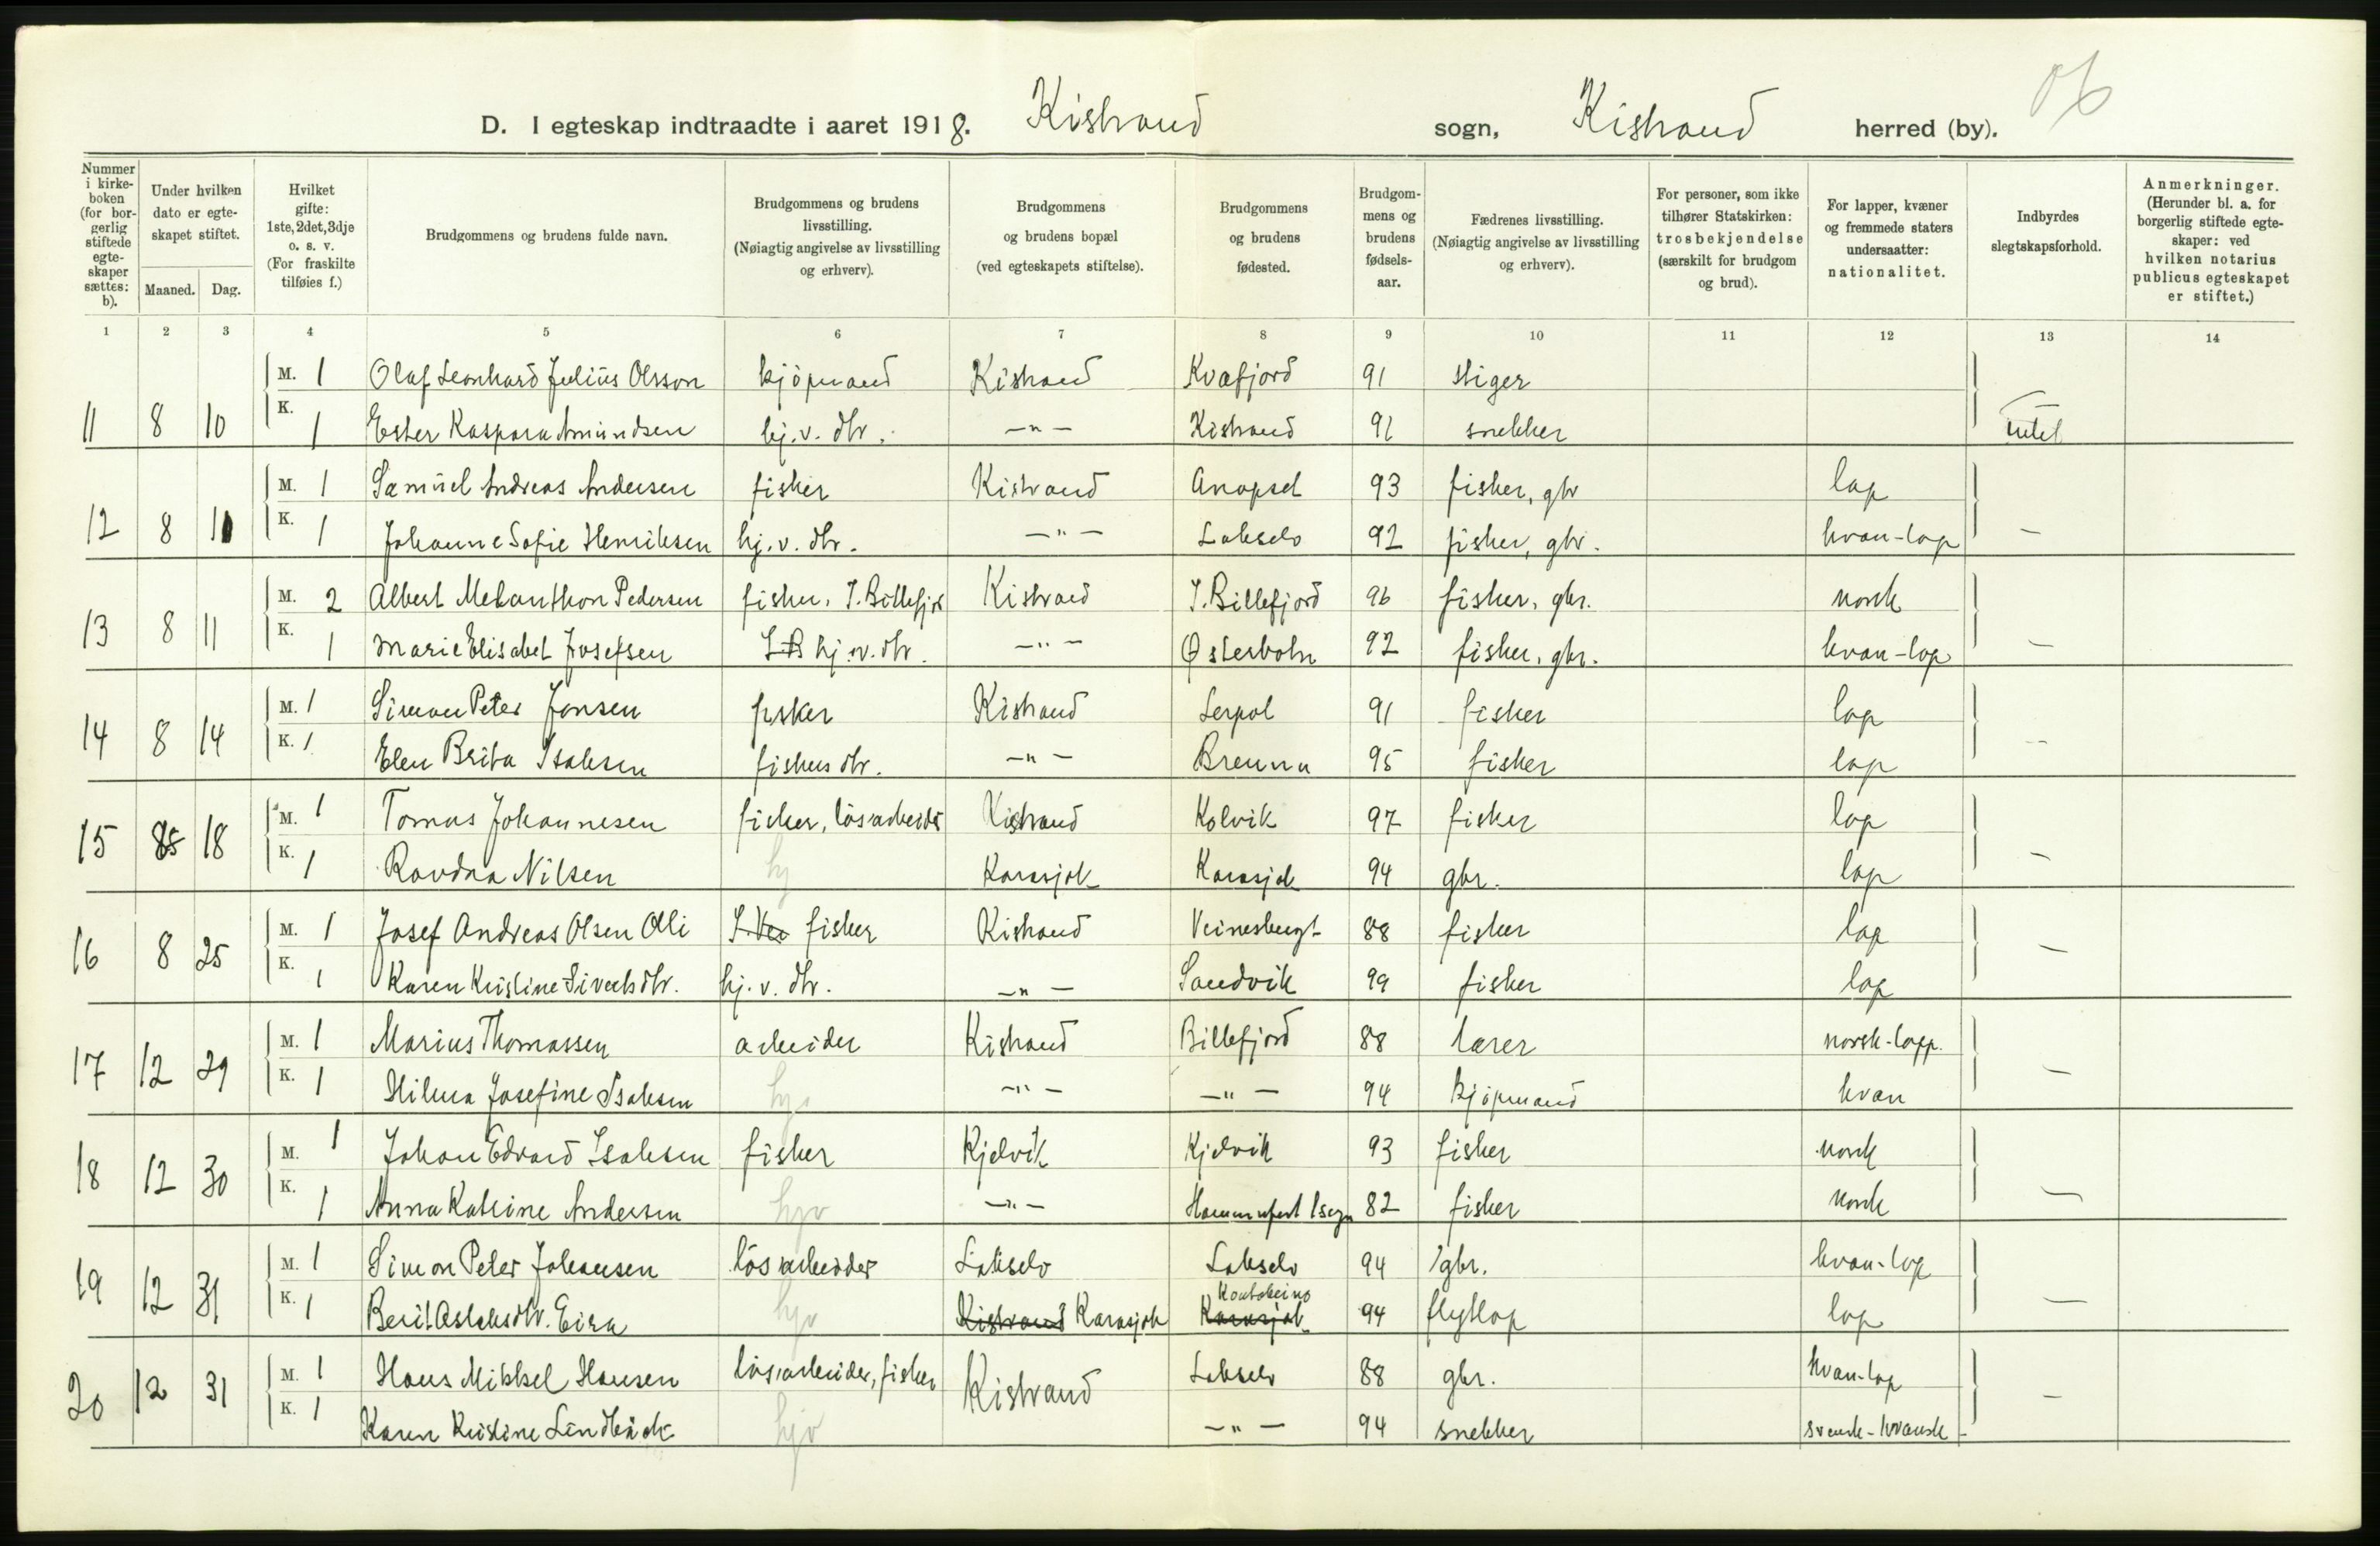 06
D. I egteskap indtraadte i aaret 1918. Kistrand sogn, Kistrand herred (by).
Nummer i kirkeboken (for borgerlig stiftede egteskaper sættes: b).
Under hvilken dato er egteskapet stiftet.
Maaned. Dag.
Hvilket gifte: 1ste, 2det, 3dje o. s. v. (For fraskilte tilføies f.)
Brudgommens og brudens fulde navn.
Brudgommens og brudens livsstilling. (Nøiagtig angivelse av livsstilling og erhverv).
Brudgommens og brudens bopæl (ved egteskapets stiftelse).
Brudgommens og brudens fødested.
Brudgommens og brudens fødselsaar.
Fædrenes livsstilling. (Nøiagtig angivelse av livsstilling og erhverv).
For personer, som ikke tilhører Statskirken: trosbekjendelse (særskilt for brudgom og brud).
For lapper, kvæner og fremmede staters undersaatter: nationalitet.
Indbyrdes slegtskapsforhold.
Anmerkninger. (Herunder bl. a. for borgerlig stiftede egteskaper: ved hvilken notarius publicus egteskapet er stiftet.)
1 2 3 4 5 6 7 8 9 10 11 12 13 14
M. 1 Olaf Leonhard Julius Olsson kjöpmand Kistrand Kvæfjord 91 stiger
11 8 10 K. 1 Ester Kaspara Amundsen hj. v. dtr. -"- Kistrand 91 snekker intet
M. 1 Samuel Andreas Andersen fisker Kistrand Anopset 93 fisker, gbr lap
12 8 11 K. 1 Johanne Sofie Henriksen hj. v. dtr. -"- Lakselv 92 fisker, gbr. kvæn-lap -
M. 2 Albert Melanthon Pedersen fisker, I. Billefjor Kistrand I. Billefjord 96 fisker, gbr. norsk
13 8 11 K. 1 Marie Elisabet Josefsen I. B hj. v. dtr. -"- Østerbotn 92 fisker, gbr. kvæn-lap -
M. 1 Simon Peter Jonsen fisker Kistrand Lerpol 91 fisker lap
14 8 14 K. 1 Elen Brita Isaksen fiskers dtr. -"- Brenna 95 fisker lap -
M. 1 Tomas Johannesen fisker, lösarbeider Kistrand Kolvik 97 fisker lap
15 8 18 K. 1 Ravdna Nilsen hj Karasjok Karasjok 94 gbr. lap -
M. 1 Josef Andreas Olsen Olli fisker Kistrand Veinesbugt 88 fisker lap
16 8 25 K. 1 Karen Kristine Sivertsdtr. hj. v. dtr. -"- Sandvik 99 fisker lap -
M. 1 Marius Thomassen arbeider Kistrand Billefjord 88 lærer norsk-lapp.
17 12 29 K. 1 Hilma Josefine Isaksen hjv -"- -"- 94 kjöpmand kvæn -
M. 1 Johan Edvard Isaksen fisker Kjelvik Kjelvik 93 fisker norsk
18 12 30 K. 1 Anna Katrine Andersen hjv -"- Hammerfest lsogn 82 fisker norsk -
M. 1 Simon Peter Johansen lösarbeider Lakselv Lakselv 94 gbr. kvæn-lap
19 12 31 K. 1 Berit Aslaksdtr. Eira hjv Kistrand Karasjok Karasjok Kautokeino 94 flytlap lap -
M. 1 Hans Mikkel Hansen lösarbeider, fisker Kistrand Lakselv 88 gbr. kvæn-lap
20 12 31 K. 1 Karen Kristine Lindbäck hjv -"- 94 snekker svensk-kvænsk -